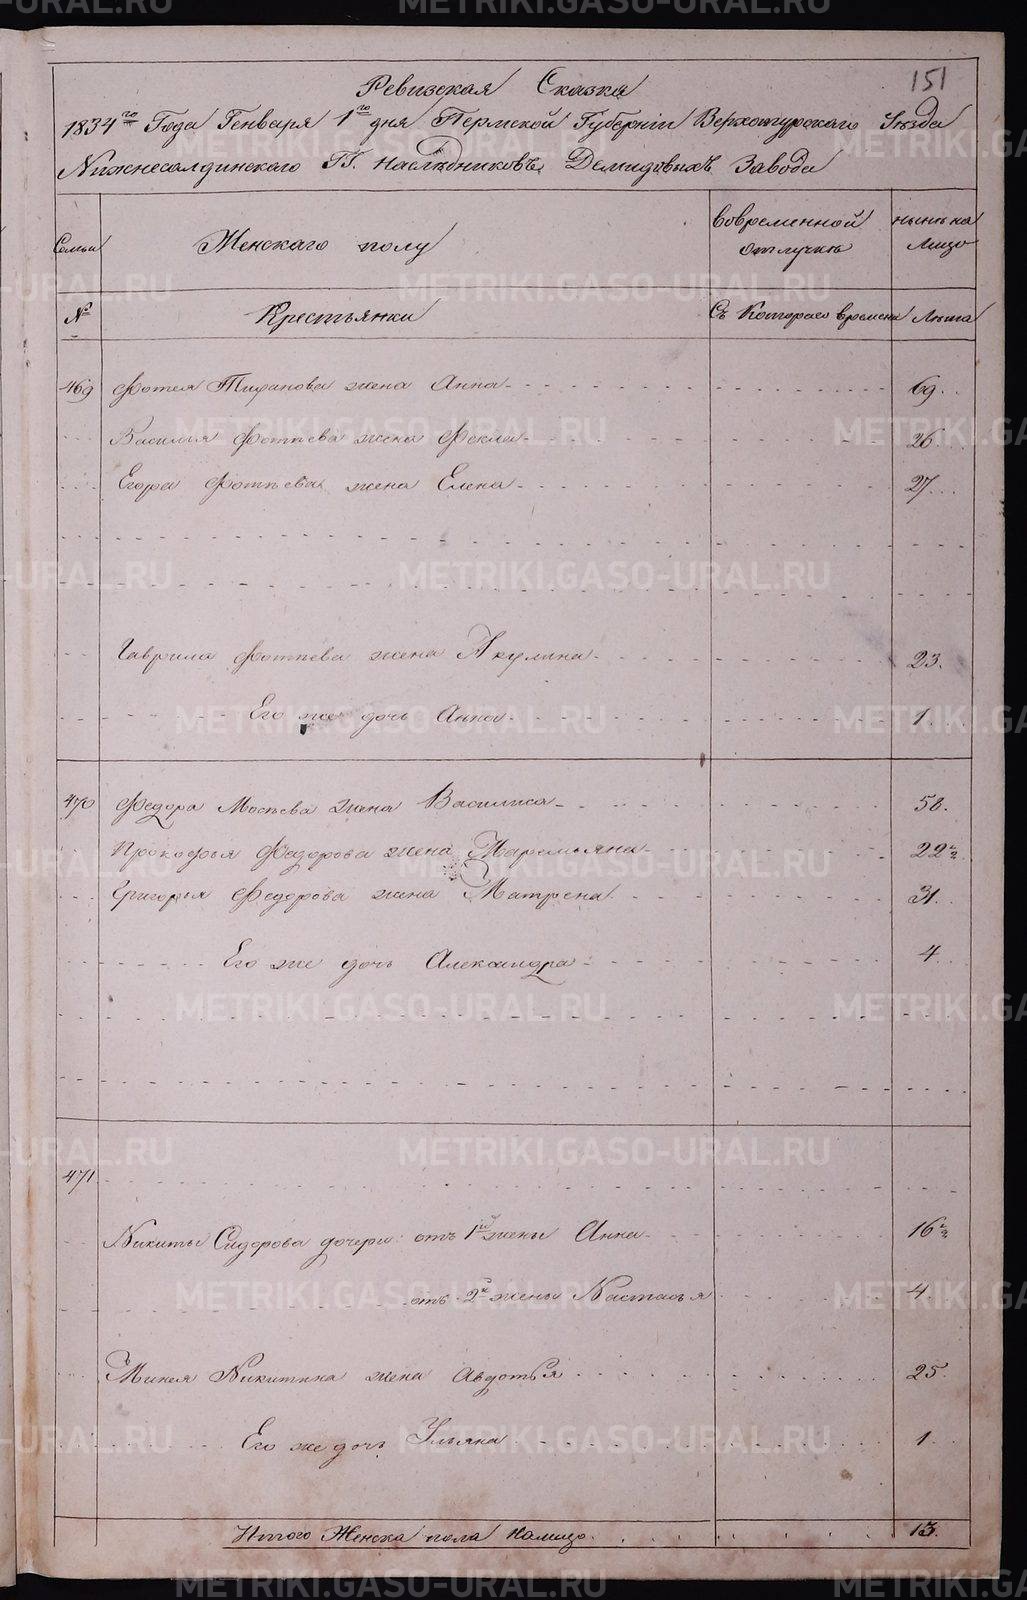 151
Ревизская Сказка
1834го Года Генваря 1го дня Пермской Губернiи Верхотурскаго Уѣзда
Нижнесалдинскаго ГГ. Наслѣдниковъ Демидовыхъ Завода
Семьи Женскаго полу Вовременной отлучкѣ ныньна лицо
№ Крестьянки Съ Котораго времени Лѣта
469 Фотея жена Анна 69.
Василья Фотѣева жена Фекла 26.
Егора Фотѣева жена Елена 27.
Гаврила Фотѣева жена Акулина 23.
Его же дочь Анна 1.
470 Федора Мосѣева жена Василиса
Прокофья Федорова жена Маремьяна 22½
Григорья Федорова жена Матрена 31.
Его же дочь Александра 4
471
Никиты Сидорова дочери: отъ 1й жены Анна 16½
отъ 2й жены Настасья 4.
Минея Никитина жена Авдотья 25.
Его же дочь Ульяна 1
Итого Женска пола Налицо 13.
METRIKI.GASO-URAL.RU